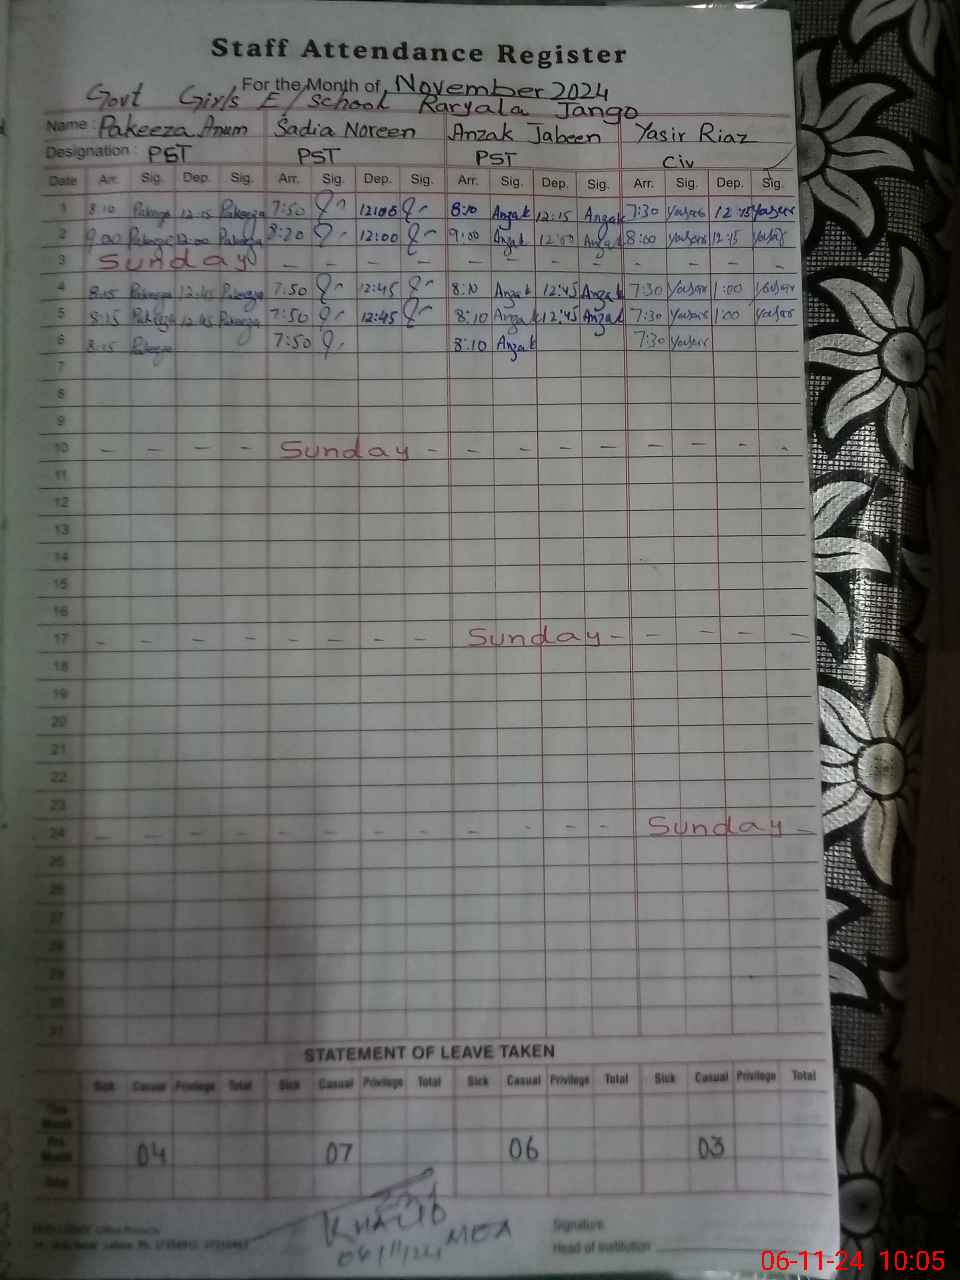 Staff Attendance Register
For the Month of November 2024
Govt Girls E/School Raryala Jango
Name : Pakeeza Anum Sadia Noreen Anzak Jabeen Yasir Riaz
Designation : PST PST PST Civ
Date Arr. Sig. Dep. Sig. Arr. Sig. Dep. Sig. Arr. Sig. Dep. Sig. Arr. Sig. Dep. Sig.
1 8:10 Pakeeza 12:15 Pakeeza 7:50 8:10 Anzak 12:15 Anzak 7:30 Yaser 12:15 Yaser
2 9:00 Pakeeza 12:00 Pakeeza 8:20 12:00 9:00 Anzak 12:00 Anzak 8:00 Yaser 12:15 Yaser
3 Sunday – – – – – – – – – – – –
4 8:15 Pakeeza 12:45 Pakeeza 7:50 12:45 8:10 Anzak 12:45 Anzak 7:30 Yaser 1:00 Yaser
5 8:15 Pakeeza 12:45 Pakeeza 7:50 12:45 8:10 Anzak 12:45 Anzak 7:30 Yaser 1:00 Yaser
6 8:15 Pakeeza 7:50 8:10 Anzak 7:30 Yaser
7
8
9
10 – – – – Sunday – – – – – – – – -
11
12
13
14
15
16
17 – – – – – – – – Sunday – – – – –
18
19
20
21
22
23
24 – – – – – – – – – – – – Sunday –
25
26
27
28
29
30
31
STATEMENT OF LEAVE TAKEN
Sick Casual Privilege Total Sick Casual Privilege Total Sick Casual Privilege Total Sick Casual Privilege Total
This Month
Pre. Month 04 07 06 03
Total
MEA
Signature
Head of Institution
06-11-24 10:05